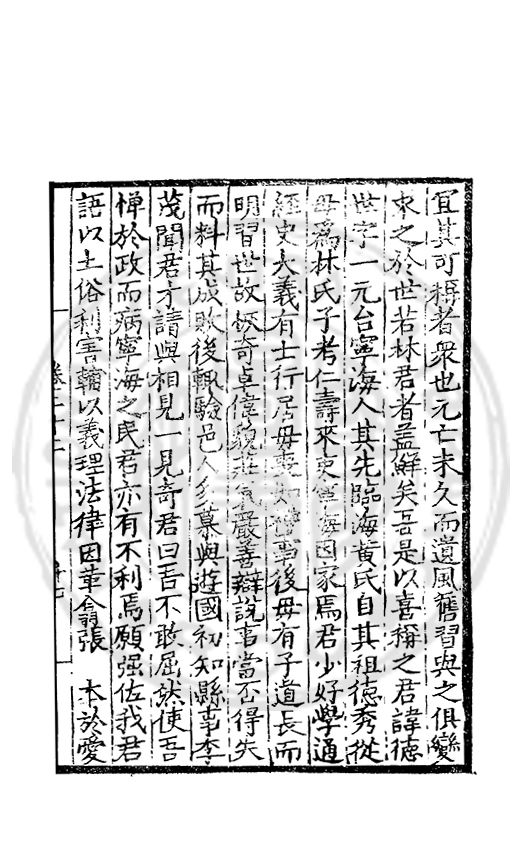 宜其可稱者衆也元亡未久而遺風舊習與之俱變
求之於世若林君者蓋鮮矣吾是以喜稱之君諱德
世字一元台寧海人其先臨海黄氏自其祖德秀從
母爲林氏子考仁壽來吏寧海因家焉君少好學通
經史大義有士行居母喪如禮事後母有子道長而
明習世故倜奇卓偉貌莊氣嚴善辯說事當否得失
而料其成敗後輒驗邑人多慕與遊國初知縣事李
茂聞君才請與相見一見奇君曰吾不敢屈然使吾
憚於政而病寧海之民君亦有不利焉願强佐我君
語以土俗利害輔以義理法律因革翕張 本於愛
卷二十二